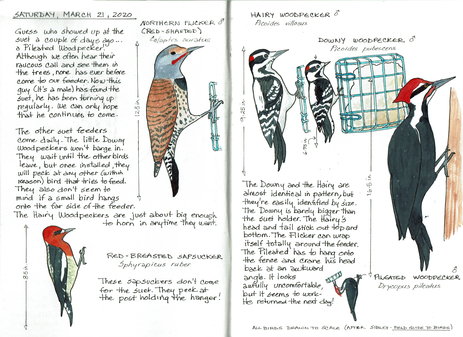 SATURDAY, MARCH 21, 2020
Guess who showed up at the
suet a couple of days ago...
a Pileated Woodpecker.
Although we often hear their
raucous call and see them in
the trees, none has ever before
come to our feeder. Now this
guy (it's a male) has found the
suet, he has been turning up
regularly. We can only hope
that he continues to come.
The other suet feeders
come daily. The little Downy
Woodpeckers won't barge in.
They wait until the other birds
leave, but once installed, they
will peck at any (within
reason) bird that tries to feed.
They also don't seem to
mind if a small bird hangs
onto the far side of the feeder.
The Hairy Woodpeckers are just about big enough
to horn in anytime they want.
RED-BREASTED SAPSUCKER
Sphyrapicus ruber
These sapsuckers don't come
for the suet. They peck at
the post holding the hanger!
NORTHERN FLICKER ♂
(RED-SHAFTED)
Colaptes auratus
HAIRY WOODPECKER ♂
Picoides villosus
DOWNY WOODPECKER ♂
Picoides pubescens
The Downy and the Hairy are
almost identical in pattern, but
they're easily identified by size.
The Downy is barely bigger than
the suet holder. The Hairy's
head and tail stick out top and
bottom. The Flicker can wrap
itself totally around the feeder.
The Pileated has to hang onto
the fence and crane his head
back at an awkward
angle. It looks
awfully uncomfortable,
but it seems to work.
He returned the next day!
PILEATED WOODPECKER ♂
Dryocopus pileatus
ALL BIRDS DRAWN TO SCALE (AFTER SIBLEY - FIELD GUIDE TO BIRDS)